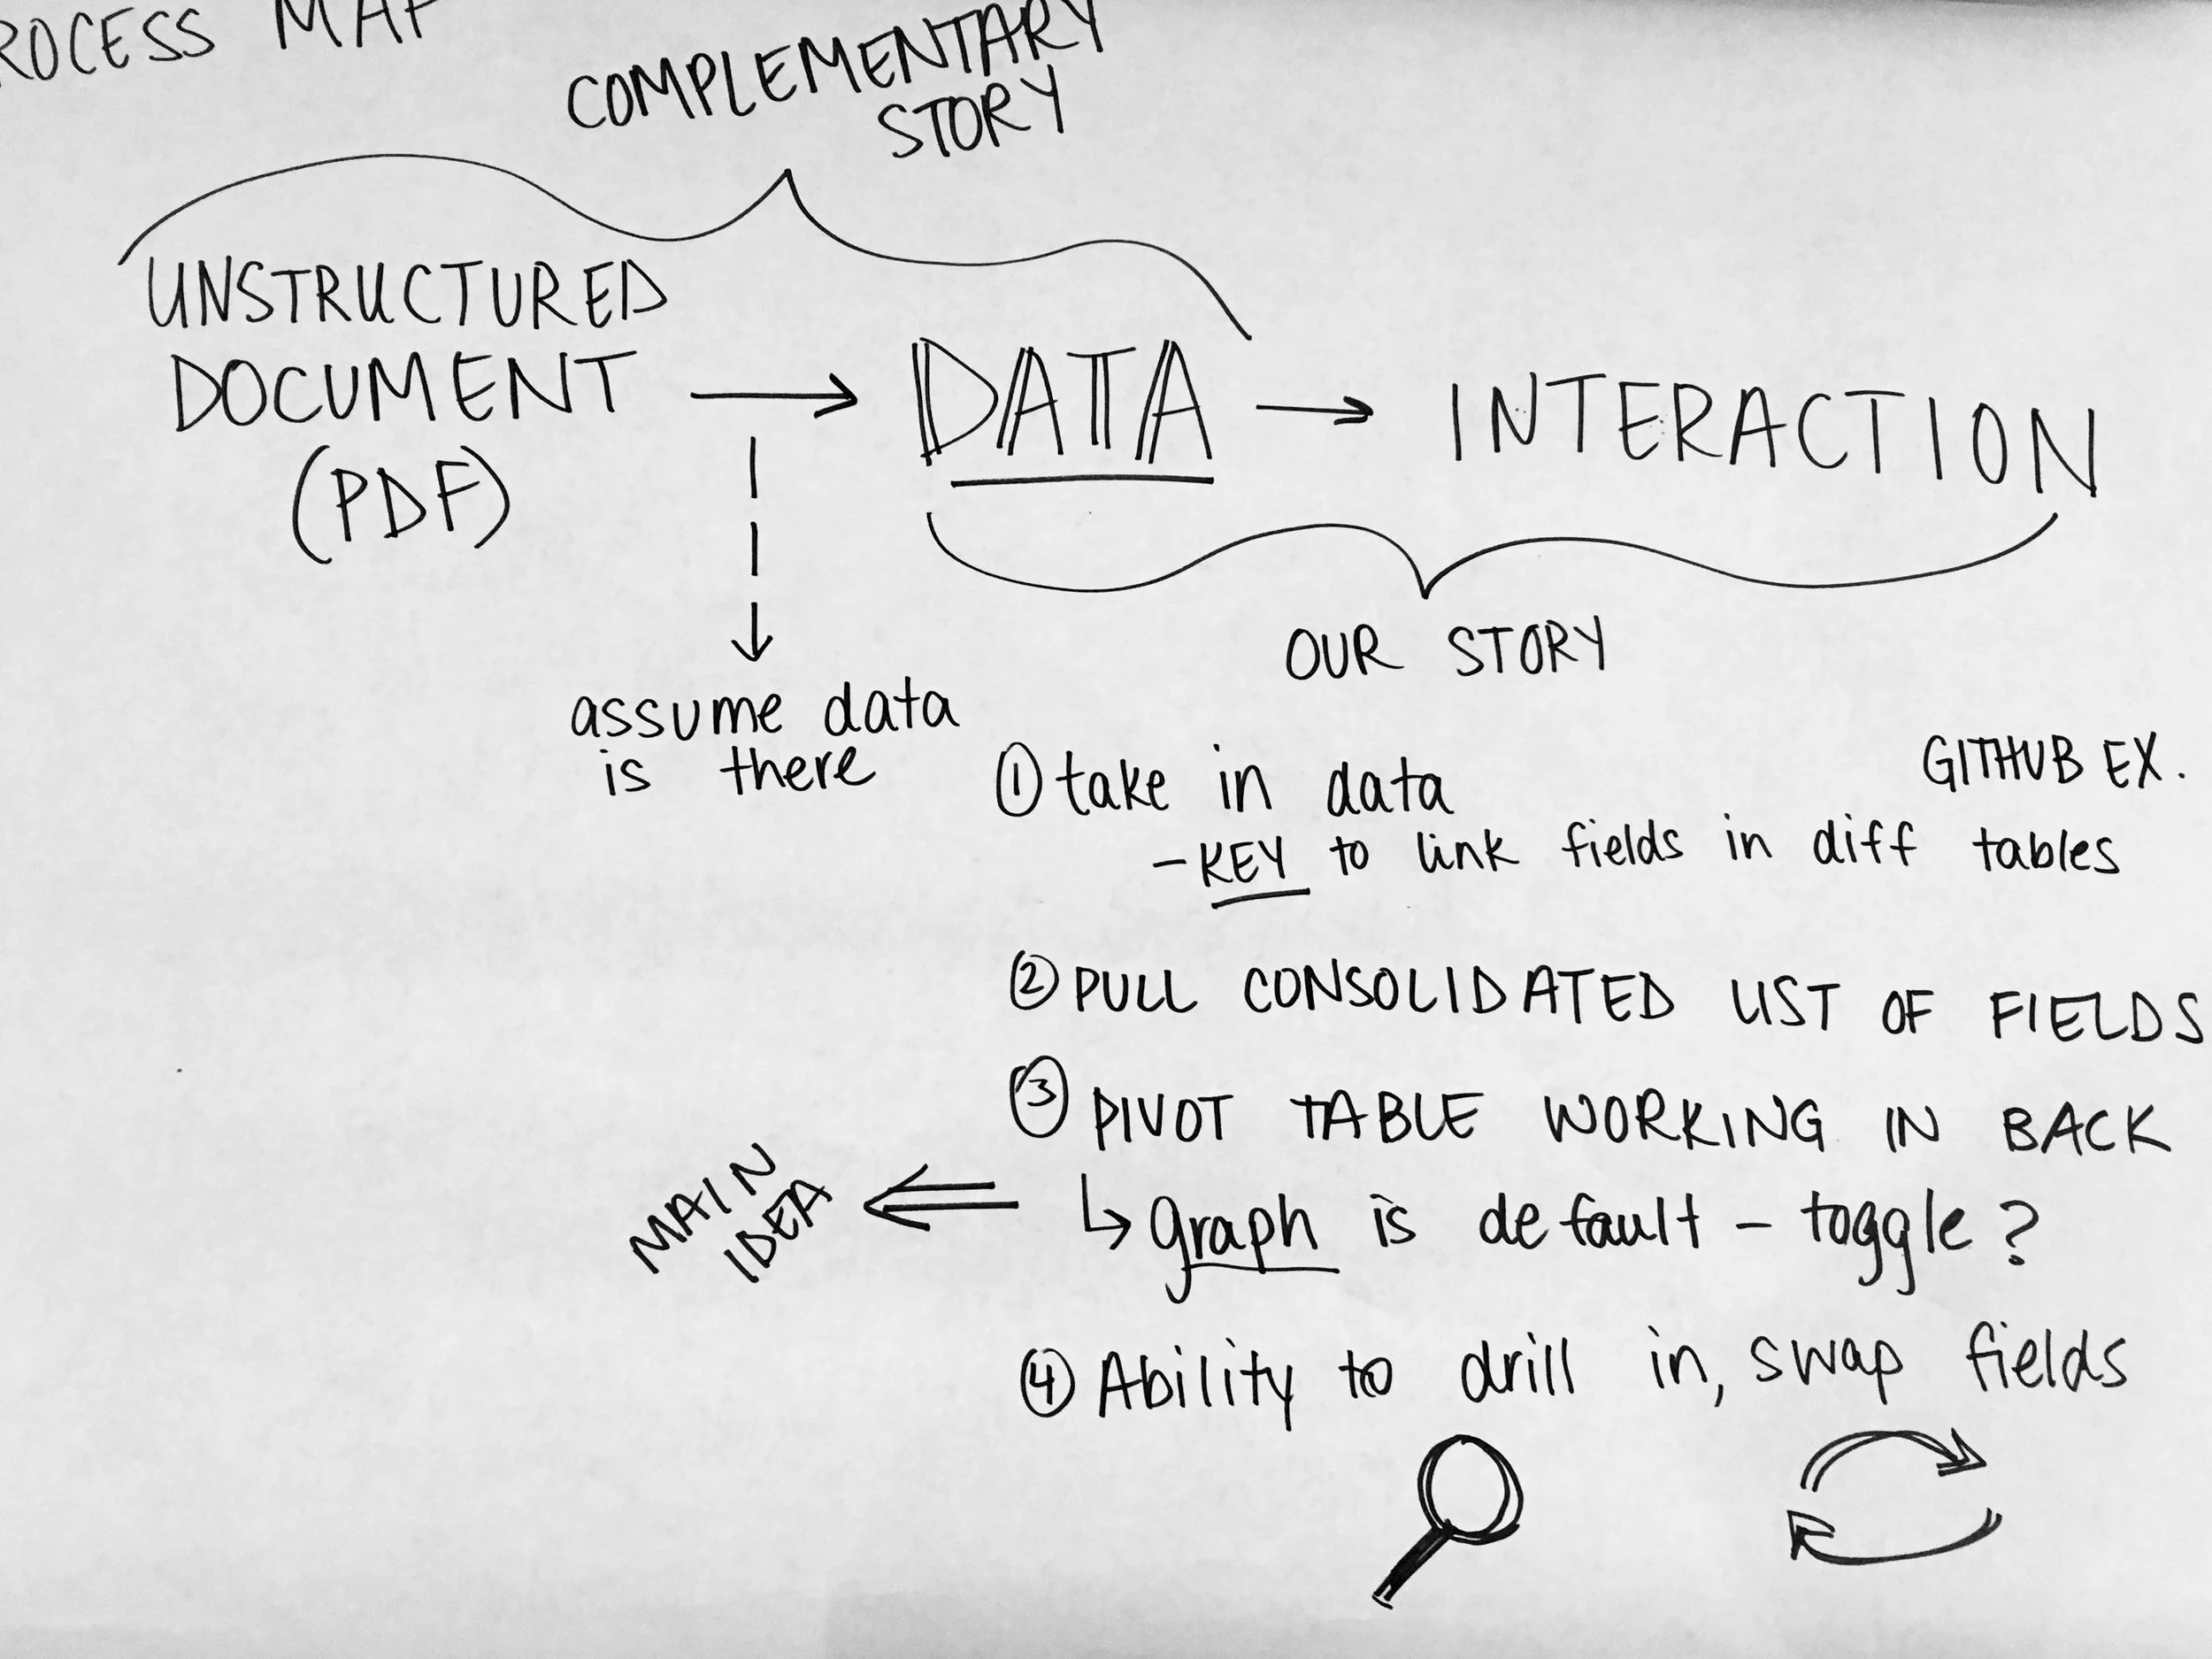 ROCESS MAP
COMPLEMENTARY
STORY
UNSTRUCTURED
DOCUMENT
(PDF)
DATA
INTERACTION
assume data
is there
OUR STORY
GITHUB EX.
① take in data
- KEY to link fields in diff tables
② PULL CONSOLIDATED LIST OF FIELDS
③ PIVOT TABLE WORKING IN BACK
↳ graph is default - toggle?
MAIN
IDEA
④ Ability to drill in, swap fields